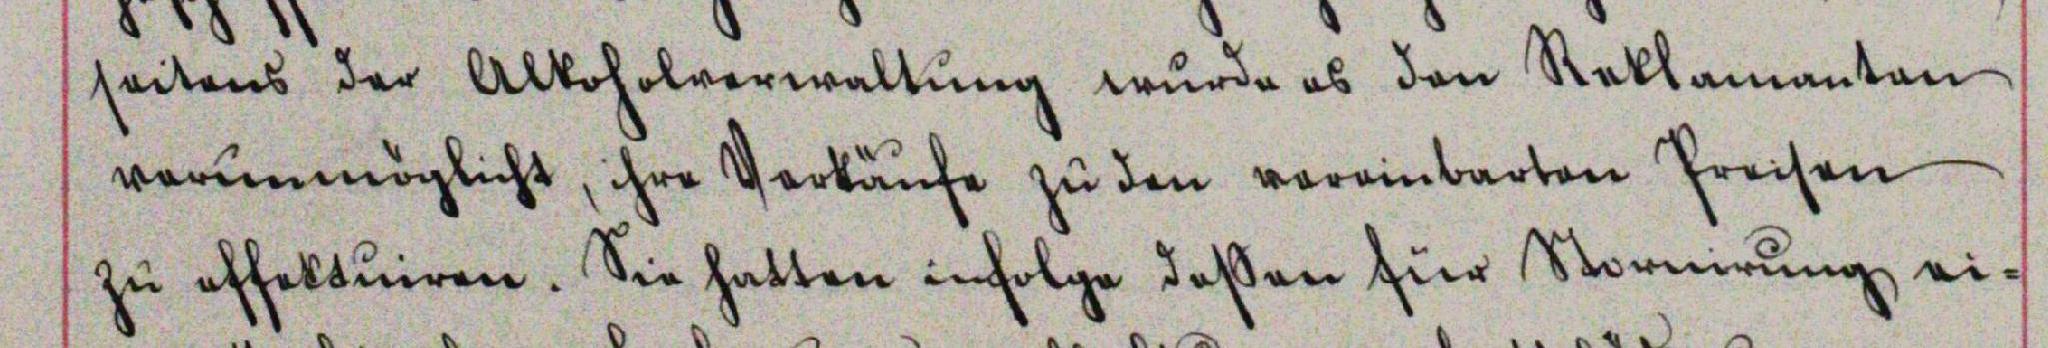 seitens der Alkoholverwaltung wurde es den Reklamanten
verunmöglicht, ihre Verkäufe zu den vereinbarten Preisen
zu effektuiren. Sie hatten infolge dessen für Stornirung ei-